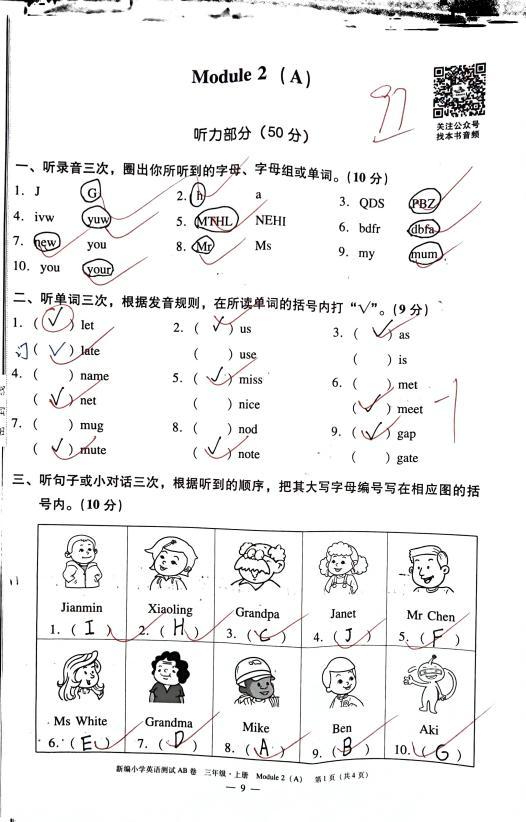 Module 2 (A)
97
关注公众号
找本书音频
听力部分（50分）
一、听录音三次，圈出你所听到的字母、字母组或单词。（10分）
1. J G 2. h a 3. QDS PBZ
4. ivw yuw 5. MTHL NEHI 6. bdfr dbfa
7. new you 8. Mr Ms 9. my mum
10. you your
二、听单词三次，根据发音规则，在所读单词的括号内打“√”。（9分）
1. ( √ ) let 2. ( √ ) us 3. ( √ ) as
( √ ) late ( ) use ( ) is
4. ( ) name 5. ( √ ) miss 6. ( ) met
( √ ) net ( ) nice ( √ ) meet -1
7. ( ) mug 8. ( ) nod 9. ( √ ) gap
( √ ) mute ( √ ) note ( ) gate
三、听句子或小对话三次，根据听到的顺序，把其大写字母编号写在相应图的括
号内。（10分）
Jianmin Xiaoling Grandpa Janet Mr Chen
1. ( I ) 2. ( H ) 3. ( C ) 4. ( J ) 5. ( F )
Ms White Grandma Mike Ben Aki
6. ( E ) 7. ( D ) 8. ( A ) 9. ( B ) 10. ( G )
新编小学英语测试AB卷 三年级·上册 Module 2 (A) 第1页（共4页）
— 9 —